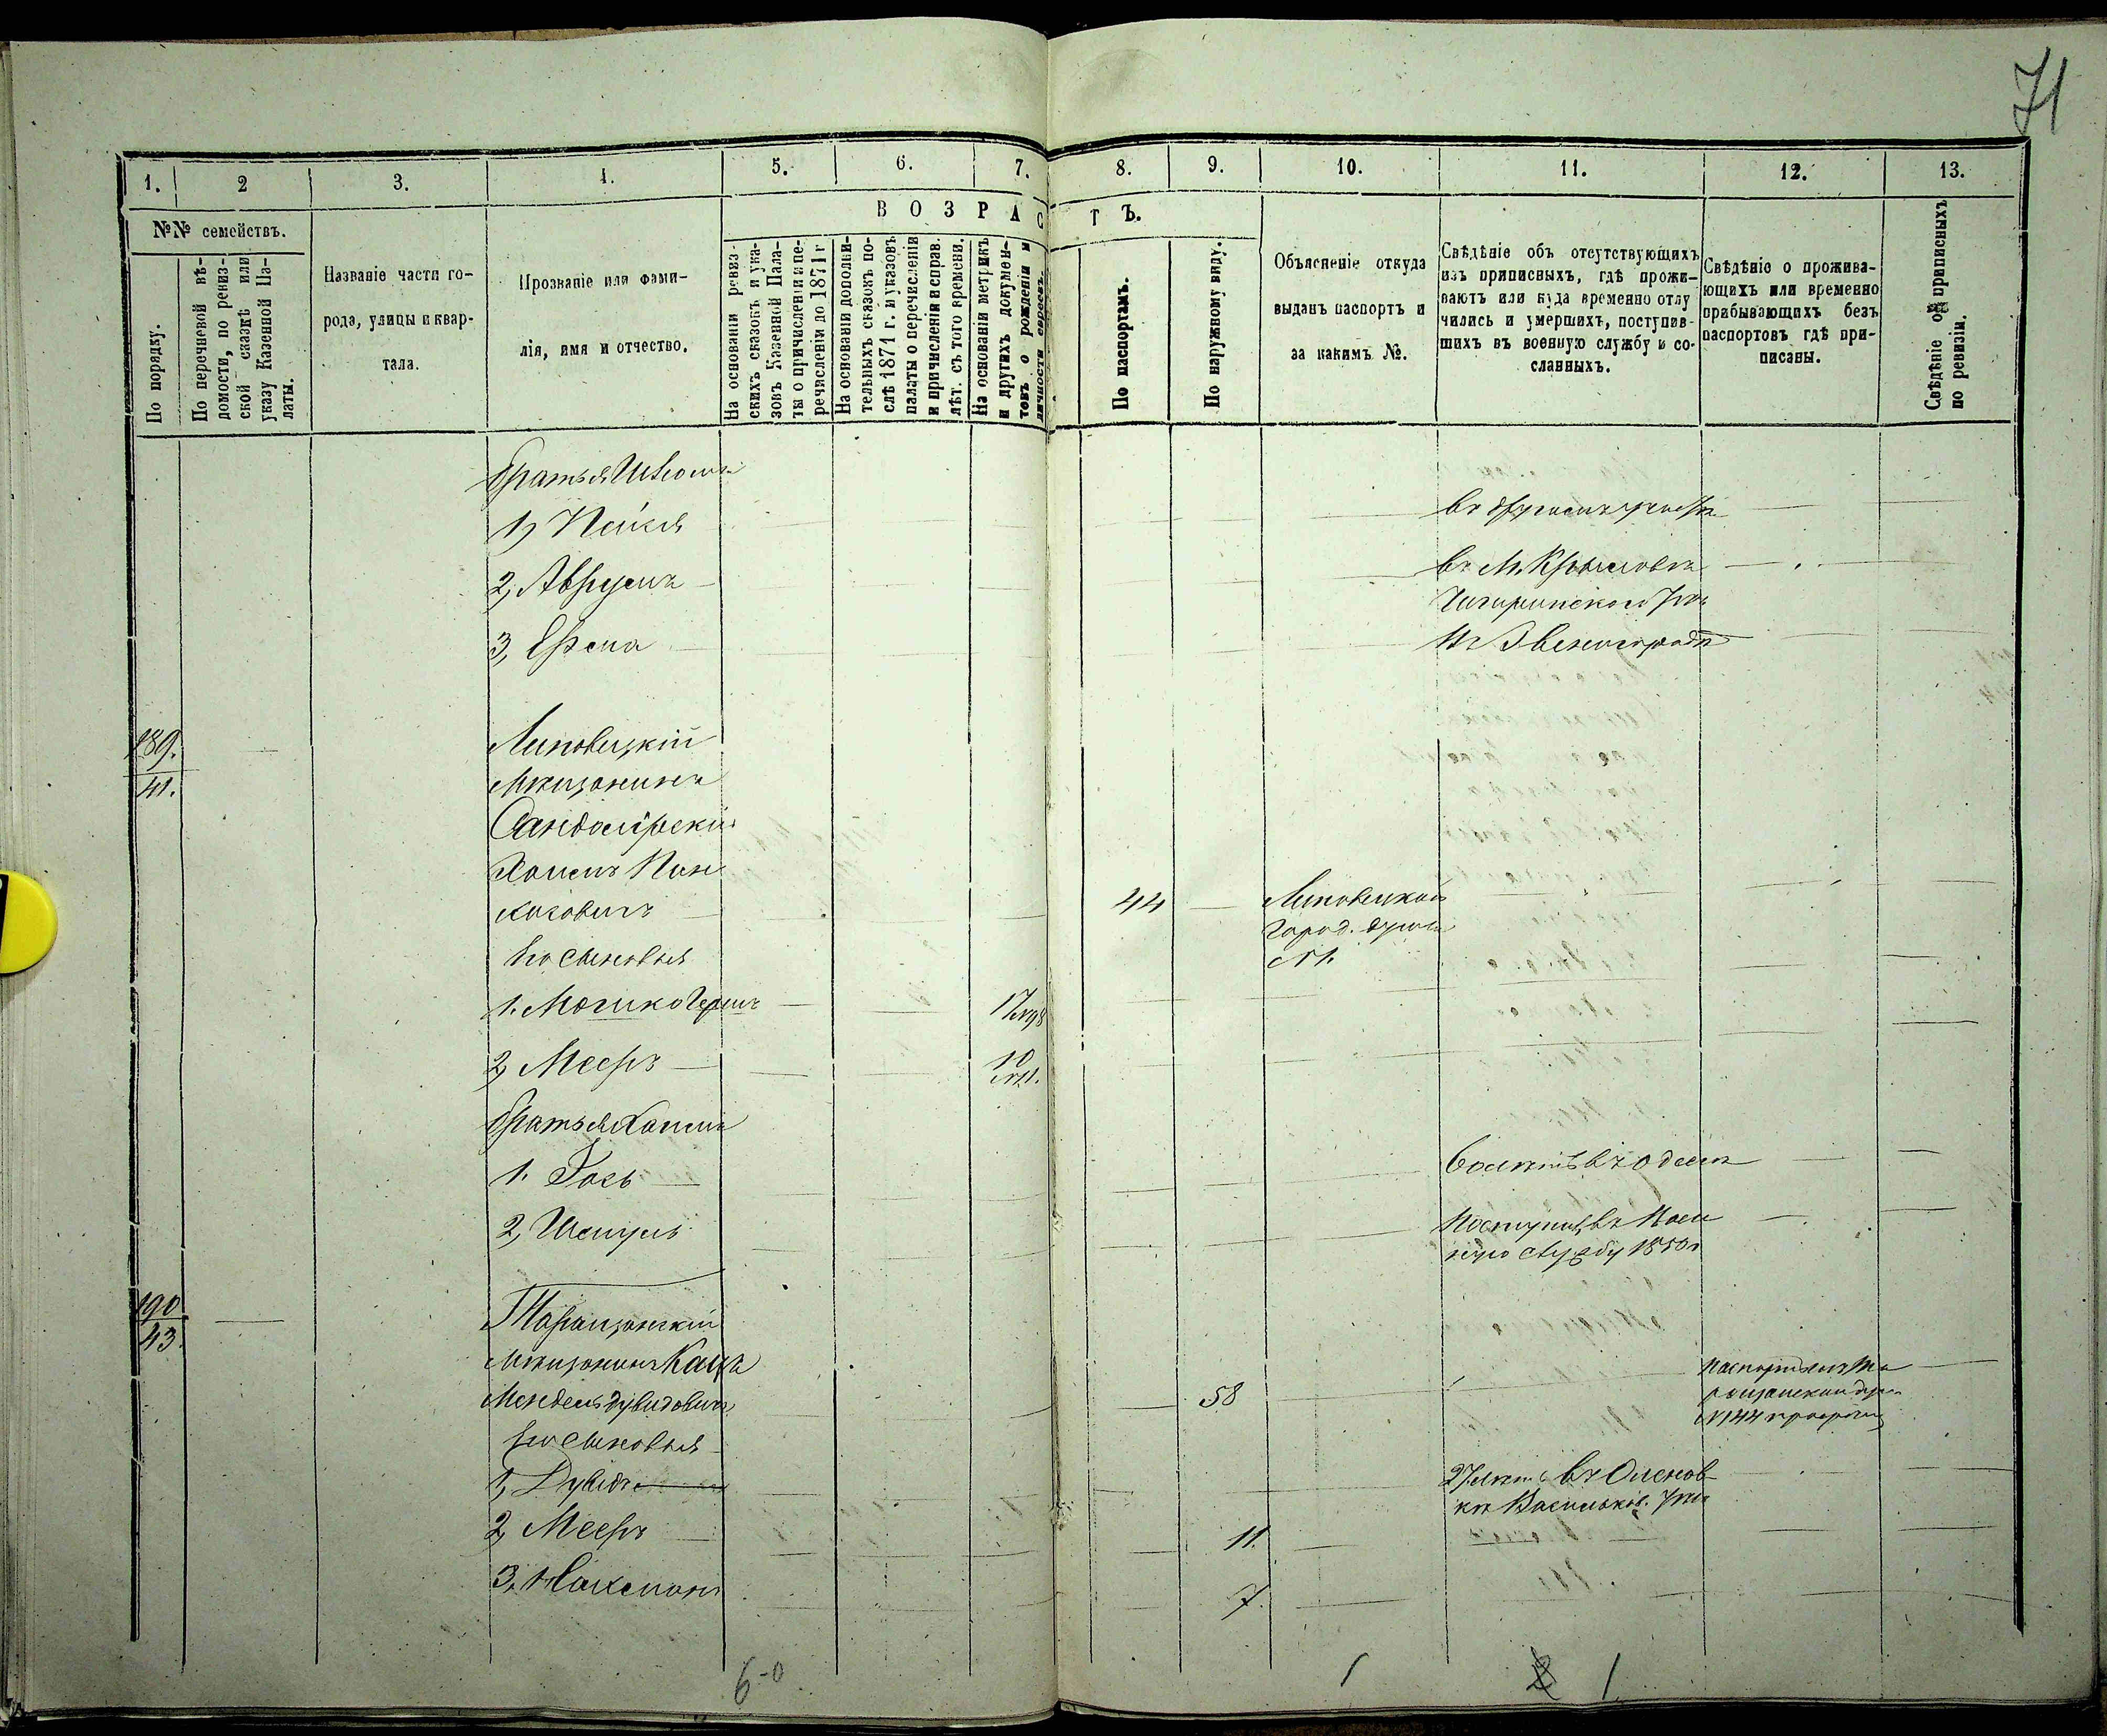 71
1. 2 3. 4. 5. 6. 7. 8. 9. 10. 11. 12. 13.
№№ семействъ.
По порядку.
По перечневой вѣ-
домости, по ревиз-
ской сказкѣ или
указу Казенной Па-
латы.
Названіе части го-
рода, улицы и квар-
тала.
Прозваніе или фами-
лія, имя и отчество.
ВОЗРАСТЪ.
На основаніи ревиз-
скихъ сказокъ и ука-
зовъ Казенной Пала-
ты о причисленіи и пе-
речисленіи до 1871 г
На основаніи дополни-
тельныхъ сказокъ по-
слѣ 1871 г. и указовъ
палаты о перечисленіи
и причисленіи и справ.
лѣт. съ того времени.
На основаніи метрикъ
и другихъ докумен-
товъ о рожденіи и
личности евреевъ.
По паспортамъ.
По наружному виду.
Объясненіе откуда
выданъ паспортъ и
за какимъ №.
Свѣдѣніе объ отсутствующихъ
изъ приписныхъ, гдѣ прожи-
ваютъ или куда временно отлу
чились и умершихъ, поступив-
шихъ въ военную службу и со-
сланныхъ.
Свѣдѣніе о прожива-
ющихъ или временно
прибывающихъ безъ
паспортовъ гдѣ при-
писаны.
Свѣдѣніе объ приписныхъ
по ревизіи.
братья
1,
2, Аврумъ въ М. Крыловѣ
Чигиринского уѣз
3, въ Звенигородкѣ
189.
41.
Липовецкій
мѣщанинъ
Сандомірскій
Хаимъ Пин
косовичъ 44 Липовецкой
город. думы
№1.
Его сыновья
1. Мошко Гершъ 17 №98
2, Мееръ 10
братья Хаима
1. Іось 6 лѣтъ въ Одессѣ
2, Шмуль поступилъ въ воен
ную службу 1850г
190
43.
Таращанскій
мѣщанинъ Кацъ
Мендель Дувидовичъ 58
№144
Его сыновья
1, Дувидъ 27 лѣтъ въ Оленов
кѣ Васильков. уѣз
2, Мееръ 11.
3, Нахманъ 7.
6-0 1 1